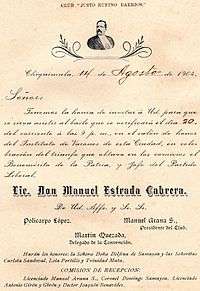 CLUB "JUSTO RUFINO BARRIOS."
Chiquimula, 14 de Agosto de 1904.
Señor:
Tenemos la honra de invitar á Ud. para que
se sirva asistir al baile que se verificará el día 20
del corriente á las 9 p. m., en el salón de honor
del Instituto de Varones de esta Ciudad, en cele-
bración del triunfo que obtuvo en los comicios el
Benemérito de la Patria, y Jefe del Partido
Liberal,
Lic. Don Manuel Estrada Cabrera.
De Ud. Affs. y S. S.
Policarpo López. Manuel Arana S.,
Presidente del Club.
Martín Quezada,
Delegado de la Convención.
Harán los honores: la Señora Doña Delfina de Samayoa y las Señoritas
Carlota Sandoval, Lola Portillo y Trinidad Mata.
COMISION DE RECEPCION:
Licenciado Manuel Arana S., Coronel Domingo Samayoa, Licenciado
Antonio Girón y Girón y Doctor Joaquín Benavides.